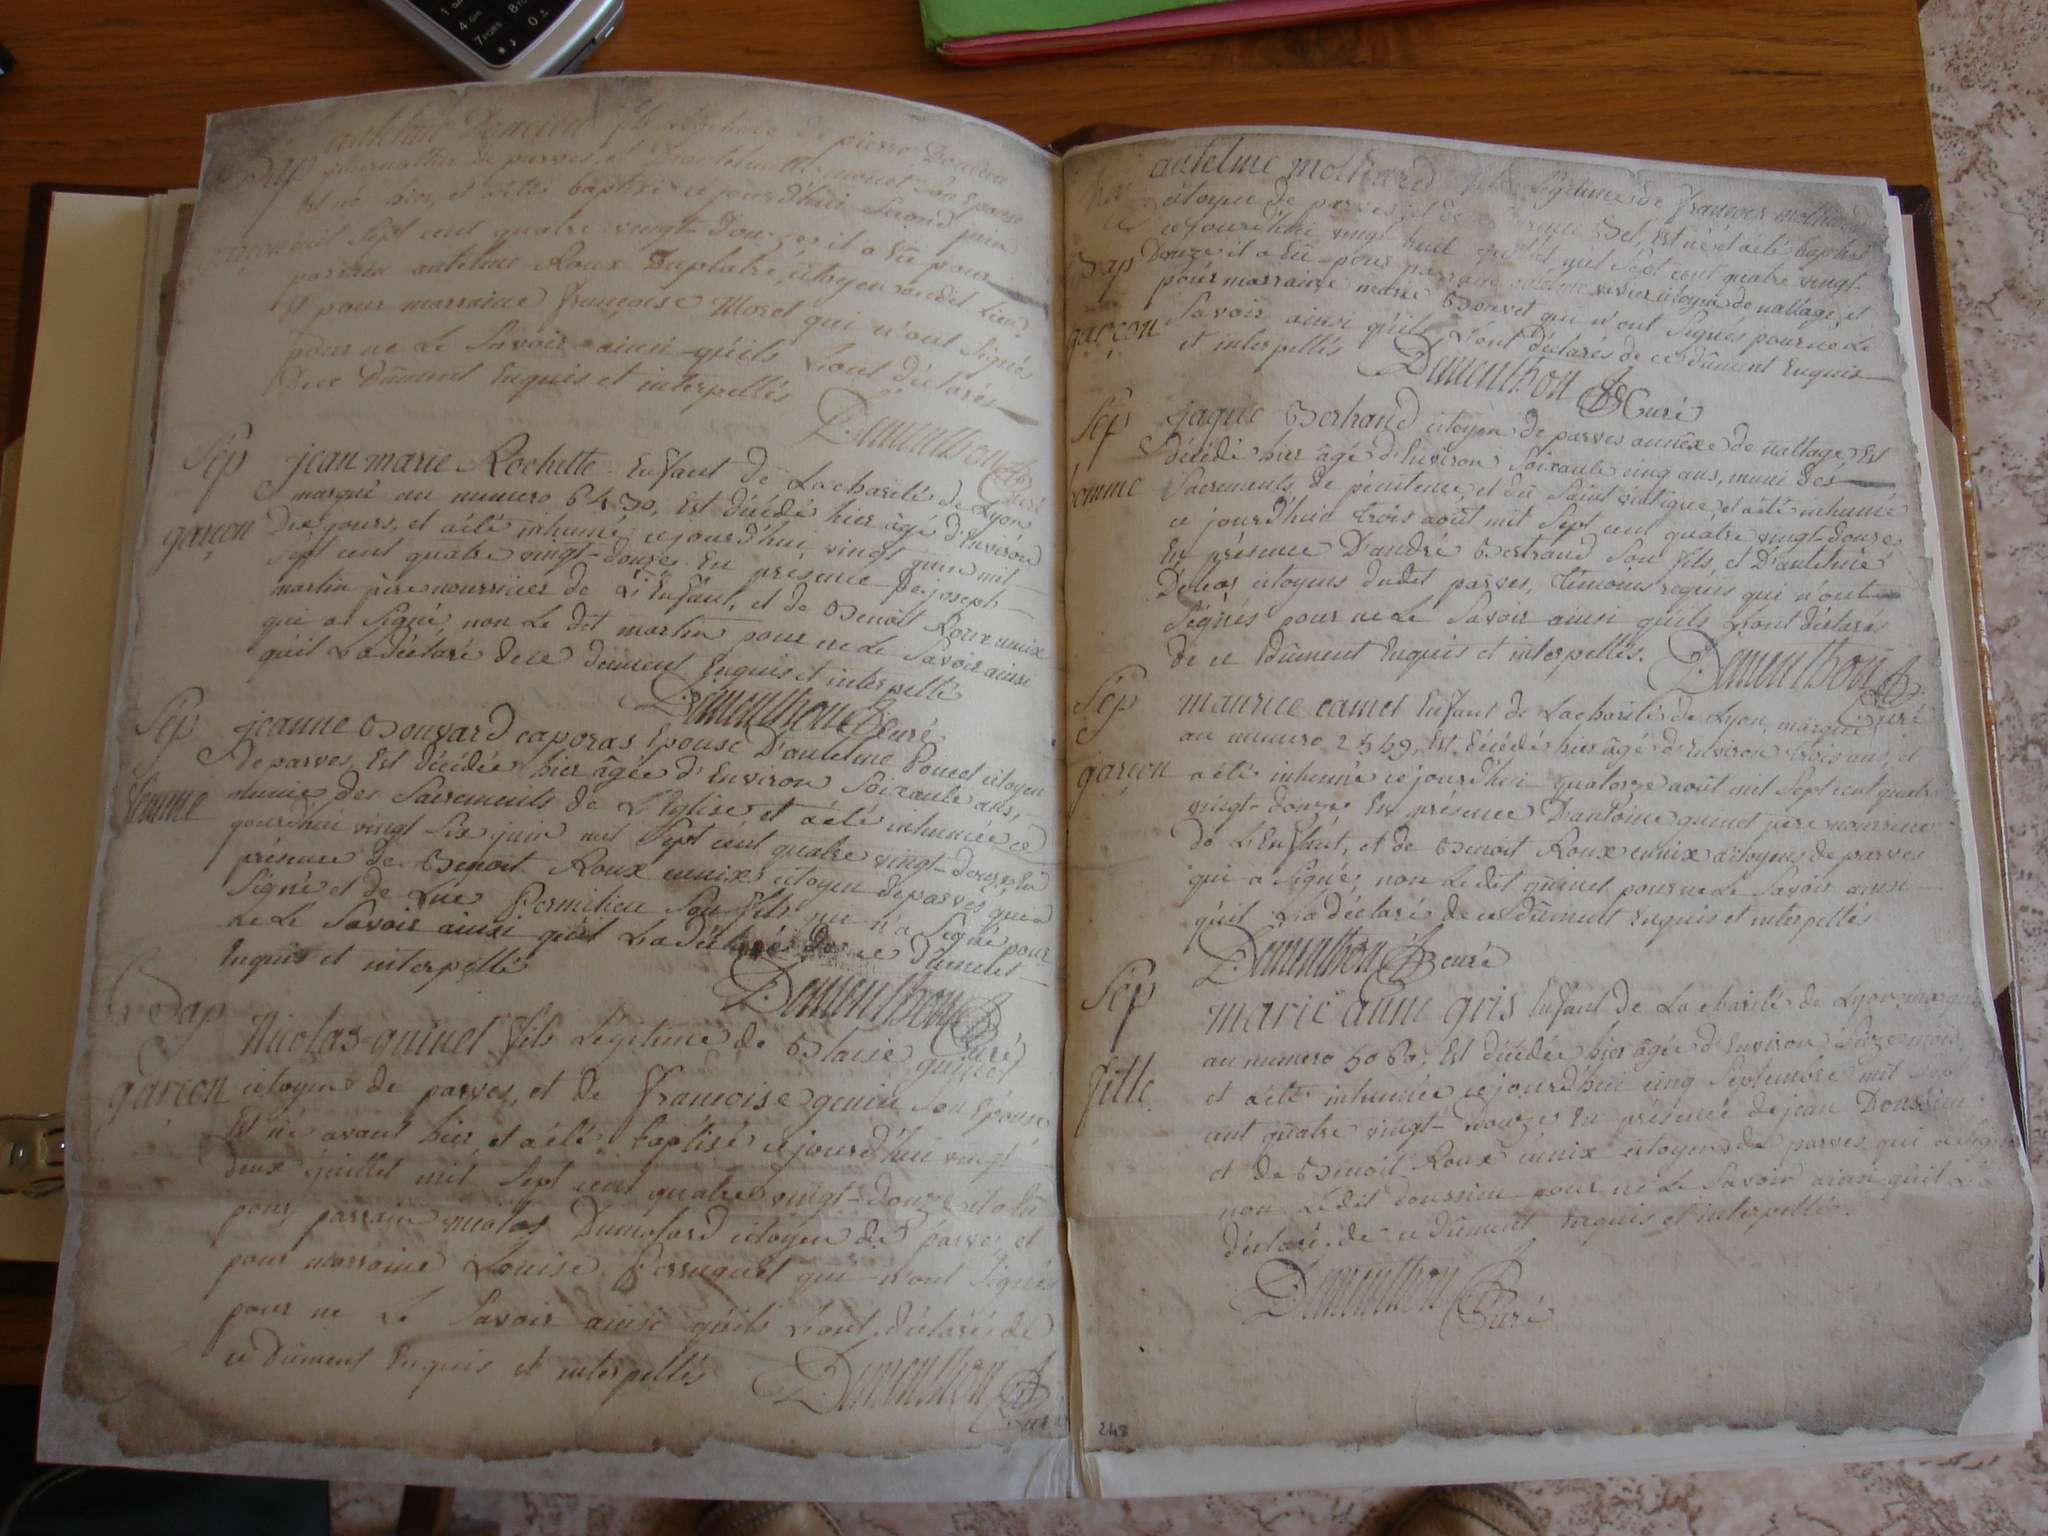 Bap
garçon
anthelme fils Légitime de pierre
journallier de parves, et son Epouse
Est né hier, et aété baptisé ce jourd'hui Second juin
mil Sept cent quatre vingt Douze, il a Eû pour
parrain antelme Roux Duplatre, citoyen dudit Lieu
Et pour marraine Françoise Moret qui n'ont Signés
pour ne Le Savoir ainsi qu'ils L'ont déclarés
De ce Dûment Enquis et interpellés
Dementhon Curé
Sép
garçon
jean marie Rochette Enfant de La charité de Lyon
marqué au numero 6430, Est décédé hier âgé d'Environ
Dix jours, et aété inhumé ce jourd'hui vingt juin mil
Sept cent quatre vingt-douze. En présence de joseph
martin père nourricier de L'Enfant, et de Benoit Roux cunix
qui a Signé, non Le dit martin pour ne Le Savoir ainsi
qu'il La déclaré de ce dûment Enquis et interpellé
Dementhon Curé
Sép
femme
jeanne Bouvard caporas Epouse D'antelme Poncet citoyen
De parves, Est décédée hier âgée d'Environ Soixante ans,
munie des Sacrements de L'Eglise et aété inhumée ce
jourd'hui vingt Six juin mil Sept cent quatre vingt-Douze En
présence de Benoit Roux cunix citoyen de parves qui a
Signé et de Son fils qui n'a Signé pour
ne Le Savoir ainsi qu'il La déclaré De ce dument
Enquis et interpellé
Dementhon Curé
Bap
garçon
Nicolas guinet fils Légitime de Blaise guinet
citoyen de parves, et de françoise genin Son Epouse
Est né avant hier, et aété baptisé ce jourd'hui vingt
deux juillet mil Sept cent quatre vingt-Douze il a Eû
pour parrain nicolas Dumolard citoyen de parves et
pour marraine Louise Perruquet qui n'ont Signés
pour ne Le Savoir ainsi qu'ils L'ont déclarés de
ce Dûment Enquis et interpellés
Dementhon Curé
Bap
garçon
antelme molliard fils Légitime de françois molliard
citoyen de parves, et de Bel, Est né et aété baptisé
ce jourd'hui vingt huit juillet mil Sept cent quatre vingt
Douze il a Eû pour parrain antelme vivier citoyen de nattage, et
pour marraine marie Bonvet qui n'ont Signés pour ne Le
Savoir ainsi qu'ils L'ont déclarés de ce dûment Enquis
et interpellés
Dementhon Curé
Sép
homme
jaque Bertrand citoyen de parves annexe de nattage Est
Décédé hier âgé d'Environ Soixante cinq ans, muni des
Sacrements de pénitence, et du Saint viatique, et aété inhumé
ce jourd'hui trois août mil Sept cent quatre vingt-douze
En présence D'andré Bertrand Son fils, et D'antelme
citoyens dudit parves, témoins requis qui n'ont
Signés pour ne Le Savoir ainsi qu'ils L'ont déclarés
de ce Dûment Enquis et interpellés.
Dementhon Curé
Sép
garçon
maurice camet Enfant de La charité de Lyon, marqué
au numero 2569, Est décédé hier âgé d'Environ trois ans, et
aété inhumé ce jourd'hui quatorze août mil Sept cent quatre
vingt-douze En présence D'antoine guinet père nourricier
de L'Enfant, et de Benoit Roux cunix citoyens de parves
qui a Signé, non Le dit guinet pour ne Le Savoir ainsi
qu'il L'a déclaré de ce Dûment Enquis et interpellés
Dementhon curé
Sép
fille
marie anne gris Enfant de La charité de Lyon, marquée
au numero 5060, Est décédée hier âgée d'Environ Seize mois,
et aété inhumée ce jourd'hui cinq Septembre mil Sept
cent quatre vingt-Douze En présence de jean Doussieu
et de Benoit Roux cunix citoyens de parves qui a Signé
non Le dit doussieu pour ne Le Savoir ainsi qu'il L'a
déclaré de ce Dûment Enquis et interpellés.
Dementhon Curé
248